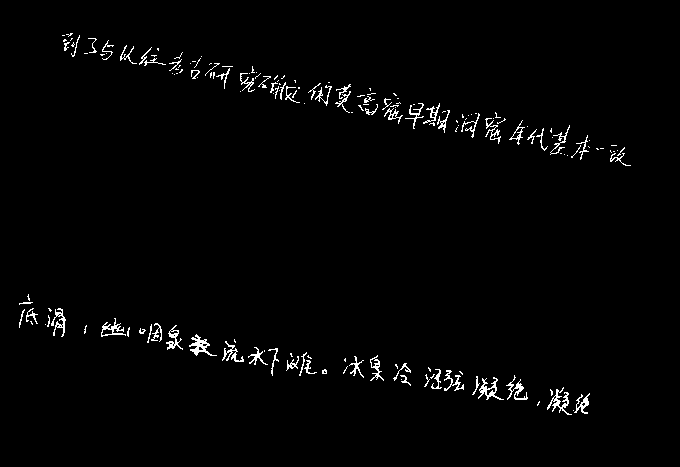 到了与以往考古研究确定的莫高窟早期洞窟年代基本一致
底滑,幽咽泉流水下滩。冰泉冷涩弦凝绝,凝绝